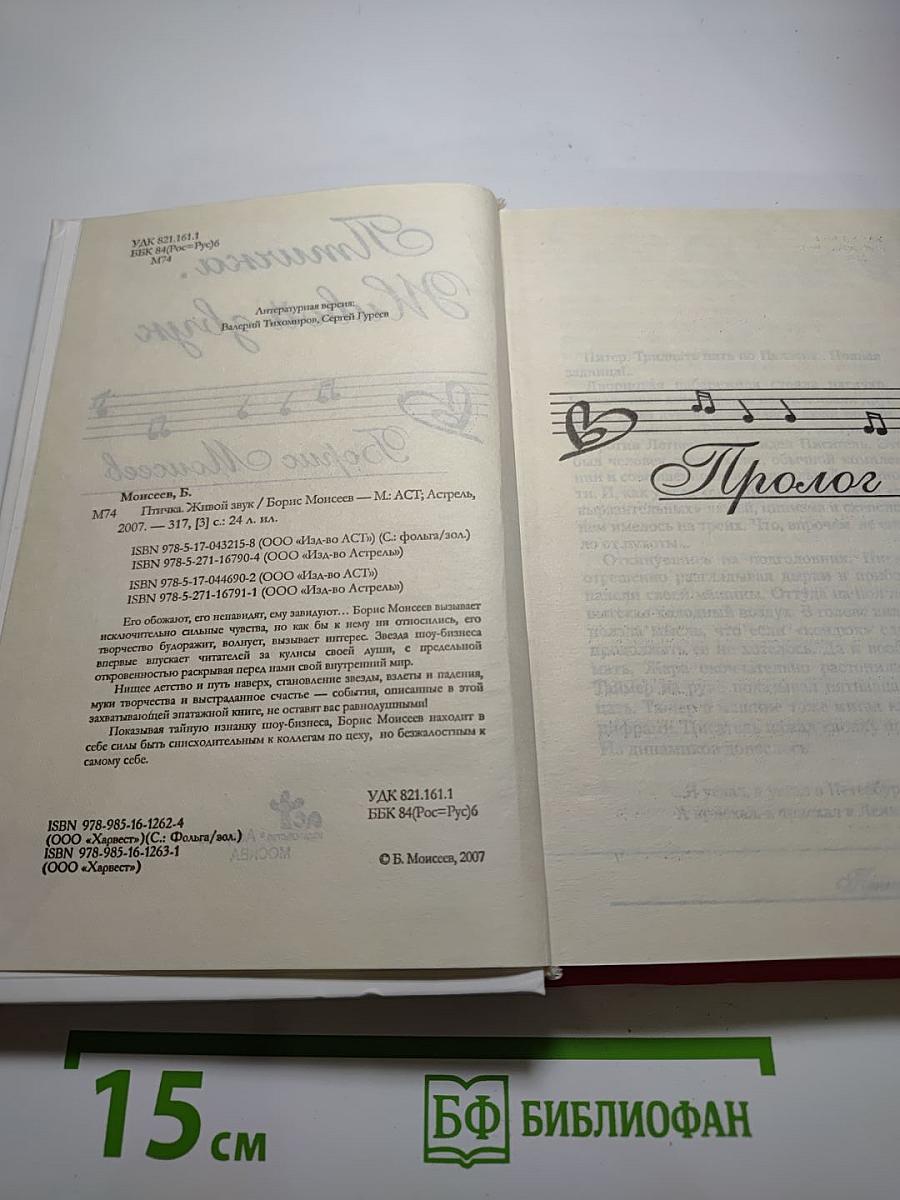 УДК 821.161.1
ББК 84(Рос=Рус)6
М74
Литературная версия:
Валерий Тихомиров, Сергей Гуреев
Моисеев, Б.
М74 Птичка. Живой звук / Борис Моисеев — М.: АСТ; Астрель,
2007. — 317, [3] с.: 24 л. ил.
ISBN 978-5-17-043215-8 (ООО «Изд-во АСТ») (С.: фольга/зол.)
ISBN 978-5-271-16790-4 (ООО «Изд-во Астрель»)
ISBN 978-5-17-044690-2 (ООО «Изд-во АСТ»)
ISBN 978-5-271-16791-1 (ООО «Изд-во Астрель»)
Его обожают, его ненавидят, ему завидуют… Борис Моисеев вызывает
исключительно сильные чувства, но как бы к нему ни относились, его
творчество будоражит, волнует, вызывает интерес. Звезда шоу-бизнеса
впервые впускает читателей за кулисы своей души, с предельной
откровенностью раскрывая перед нами свой внутренний мир.
Нищее детство и путь наверх, становление звезды, взлеты и падения,
муки творчества и выстраданное счастье — события, описанные в этой
захватывающей эпатажной книге, не оставят вас равнодушными!
Показывая тайную изнанку шоу-бизнеса, Борис Моисеев находит в
себе силы быть снисходительным к коллегам по цеху, но безжалостным к
самому себе.
УДК 821.161.1
ББК 84(Рос=Рус)6
ISBN 978-985-16-1262-4
(ООО «Харвест»)(С.: Фольга/зол.)
ISBN 978-985-16-1263-1
(ООО «Харвест»)
© Б. Моисеев, 2007
Пролог
15 см
БФ БИБЛИОФАН